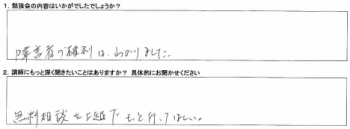 1. 勉強会の内容はいかがでしたでしょうか?
障害者の権利は、わかりました。
2. 講師にもっと深く聞きたいことはありますか? 具体的にお聞かせください
無料相談を もっと行ってほしい。